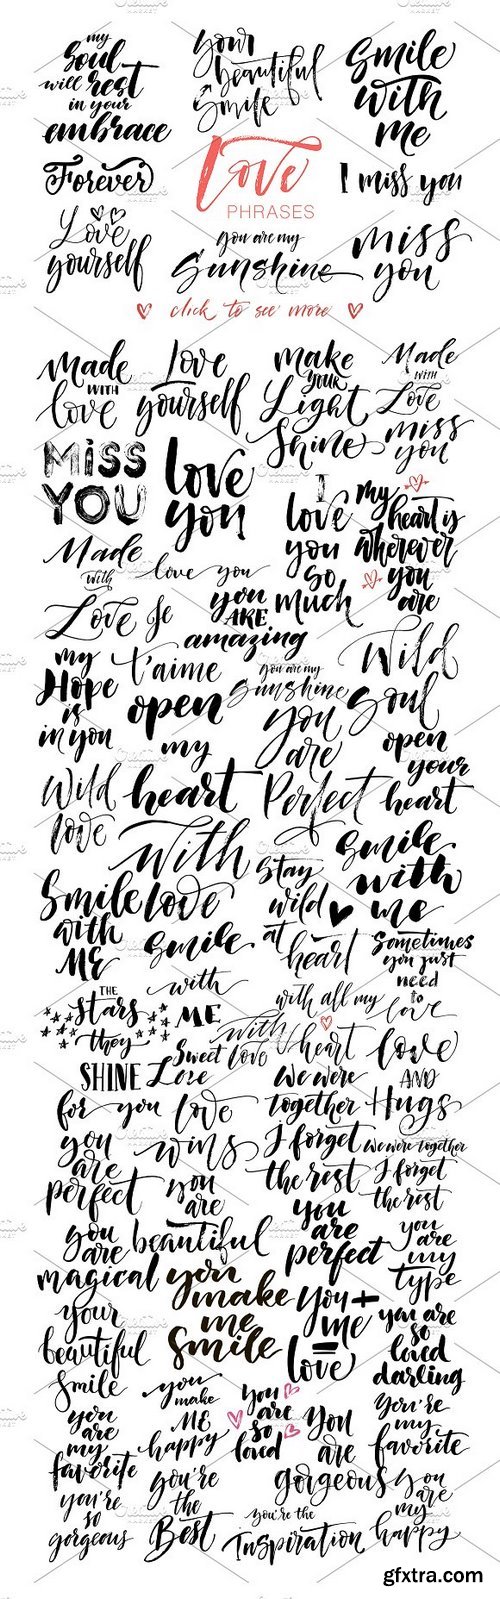 my
Soul
will rest
in your
embrace
your
beautiful
smile
Smile
with
me
Forever
Love
PHRASES
I miss you
Love
yourself
you are my
Sunshine
miss
you
click to see more
Made
WITH
love
Love
yourself
make
your
Light
Shine
Made
WITH
Love
miss
you
MISS
YOU
love
you
I
love
you
so
much
my
heart is
wherever
you
are
Made
with
Love
love you
you
ARE
amazing
Je
t'aime
my
Hope
is
in you
open
my
heart
you are my
sunshine
you
are
Perfect
Wild
Soul
open
your
heart
Wild
love
With
love
Stay
wild
at
heart
smile
with
me
Smile
with
ME
smile
with
ME
Sometimes
you just
need
to
love
THE
Stars
they
SHINE
for you
with all my
heart
with
love
Sweet love
Love
love
AND
Hugs
love
wins
We were
together
I forget
the rest
We were together
I forget
the rest
you
are
perfect
you
are
beautiful
you
are
perfect
you
are
my
type
you
are
magical
you
make
me
smile
you +
me
=
love
you are
so
loved
darling
your
beautiful
smile
you
make
ME
happy
you
are
so
loved
you
are
gorgeous
you're
my
favorite
you
are
my
favorite
you're
the
Best
you're
so
gorgeous
you're the
Inspiration
you
are
my
happy
gfxtra.com